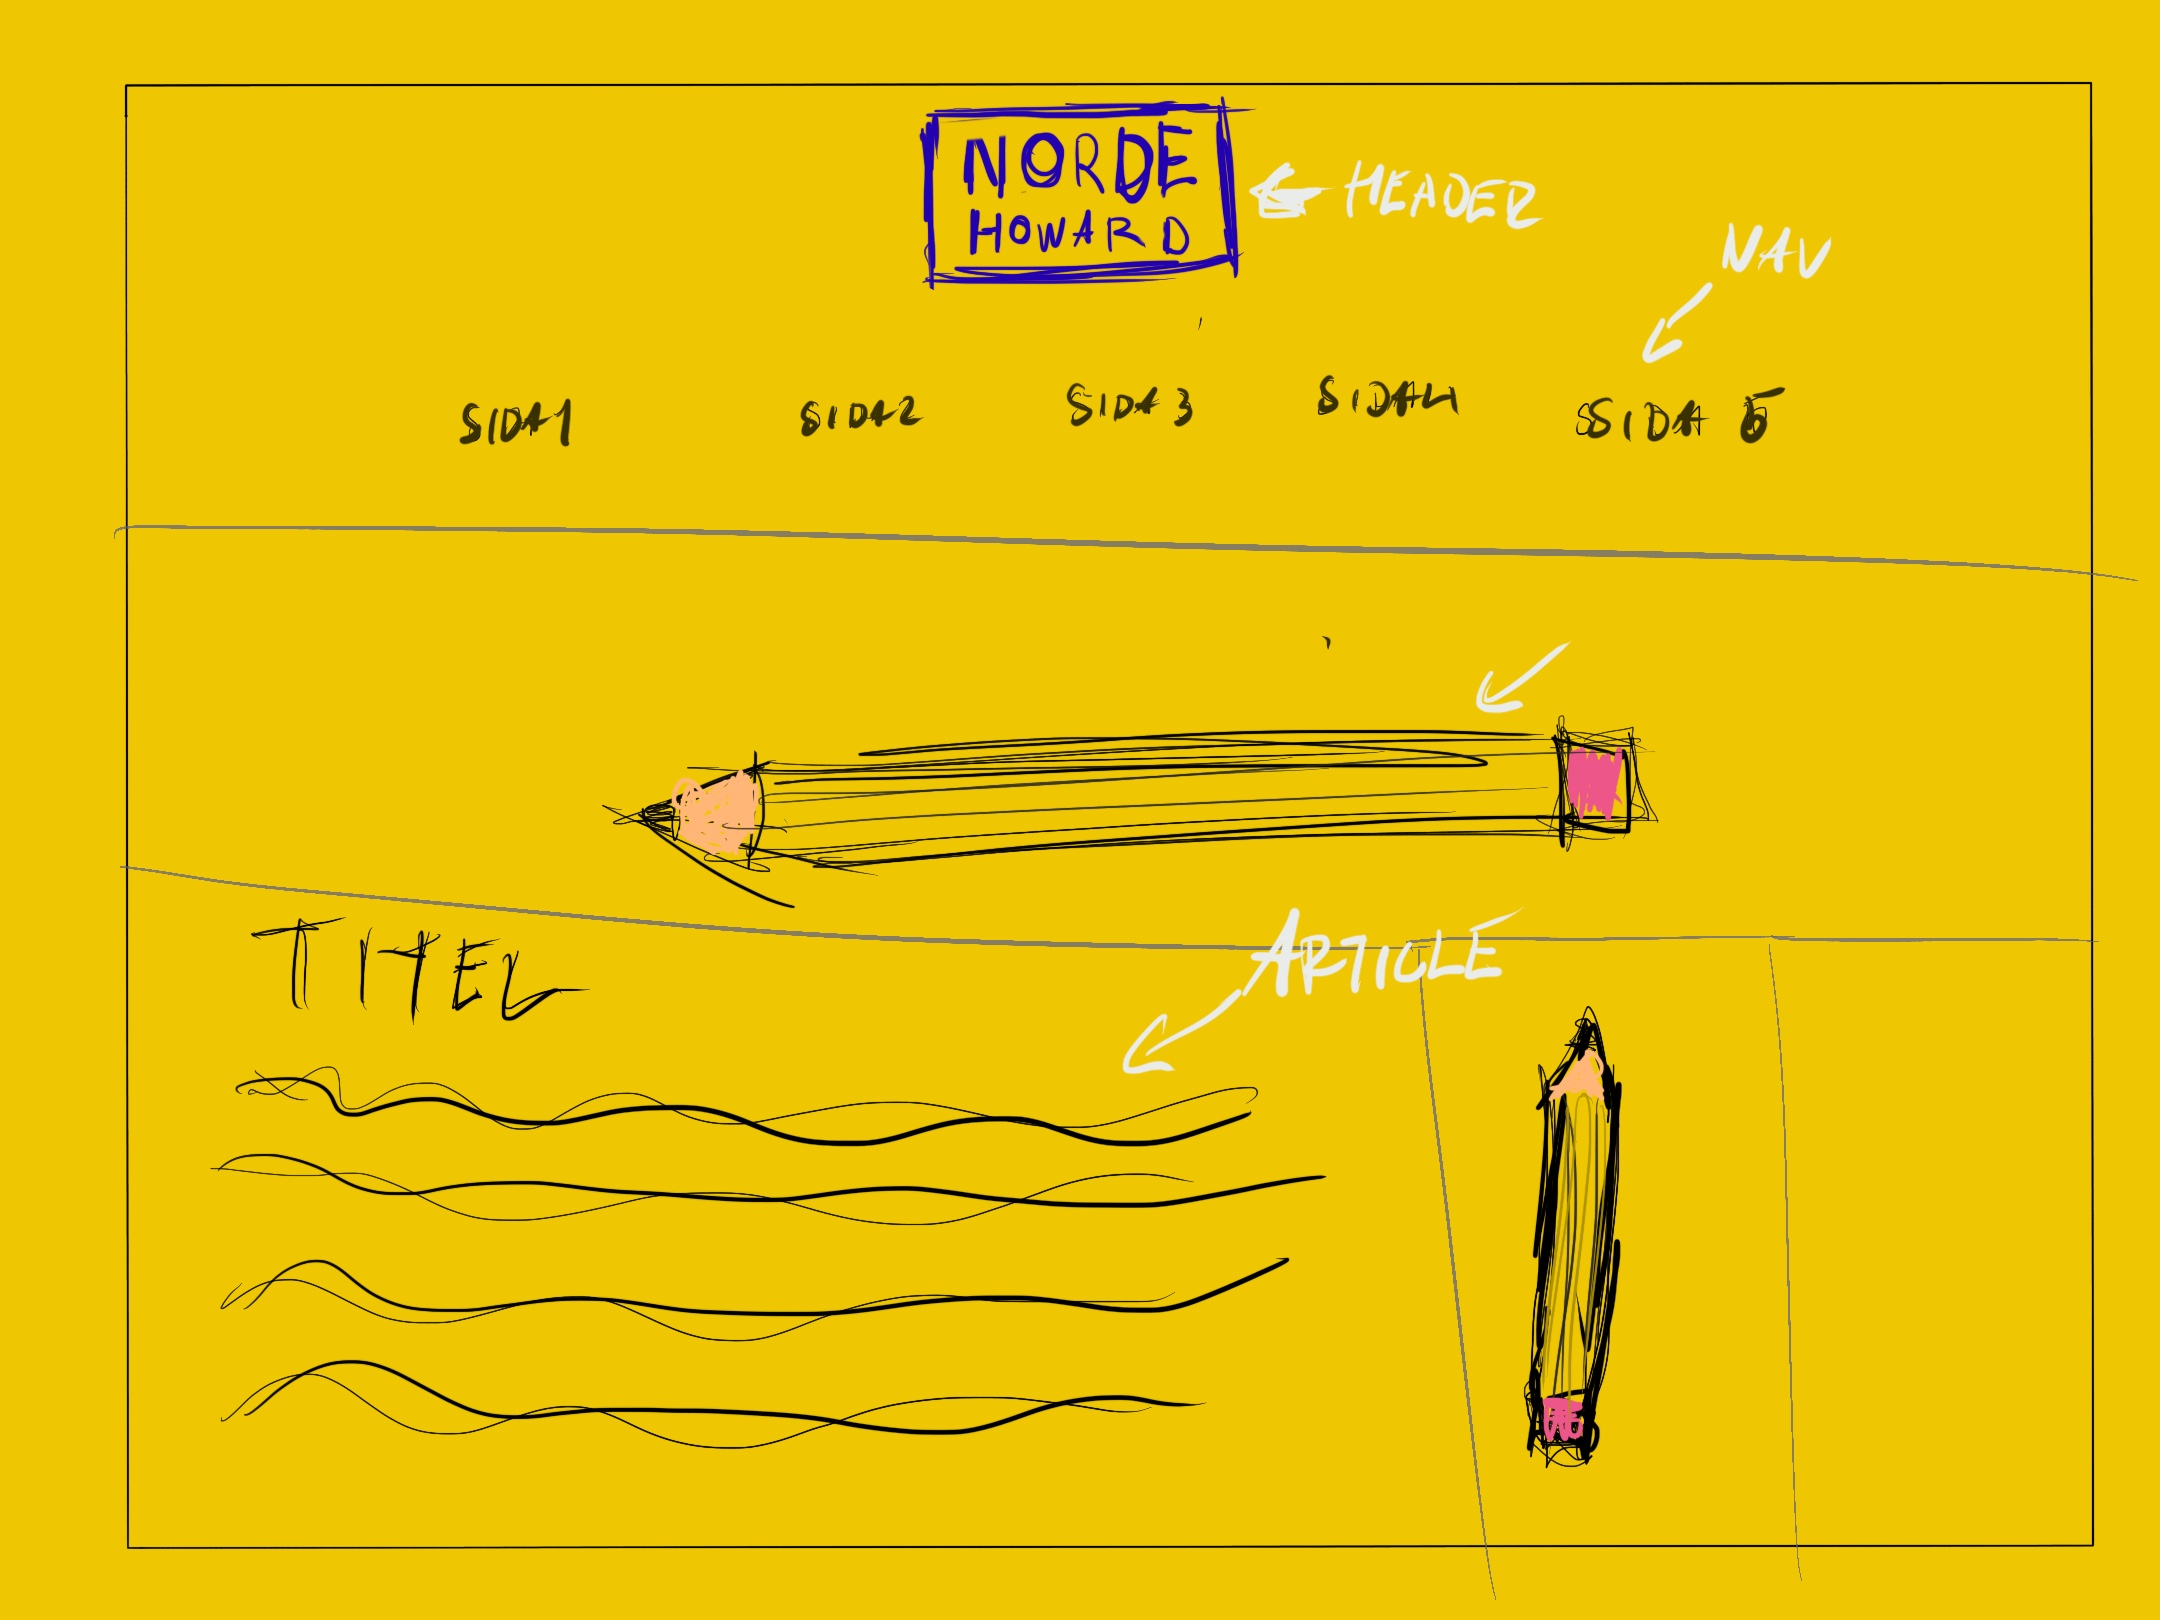 NORDE
HOWARD
HEADER
NAV
SIDA1 SIDA2 SIDA 3 SIDA4 SIDA 5
TITEL
ARTICLE